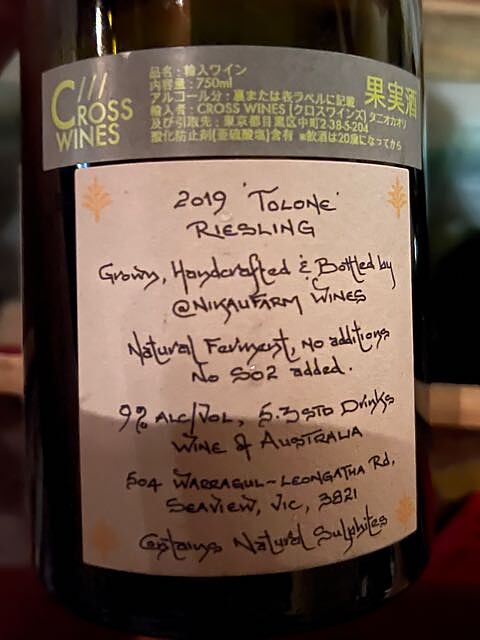 CROSS
WINES
品名：輸入ワイン
内容量：750ml
アルコール分：裏または表ラベルに記載
輸入者：CROSS WINES (クロスワインズ) タニオカオリ
及び引取先：東京都目黒区中町2-38-5-204
酸化防止剤(亜硫酸塩)含有 ※飲酒は20歳になってから
果実酒
2019 'TOLONE'
RIESLING
Grown, Handcrafted & Bottled by
@NIKAUFARM WINES
Natural Ferment, no additions
No SO2 added.
9% ALC/VOL, 5.3 STD Drinks
WINE of AUSTRALIA
504 WARRAGUL-LEONGATHA Rd,
SEAVIEW, VIC, 3821
Contains Natural Sulphites